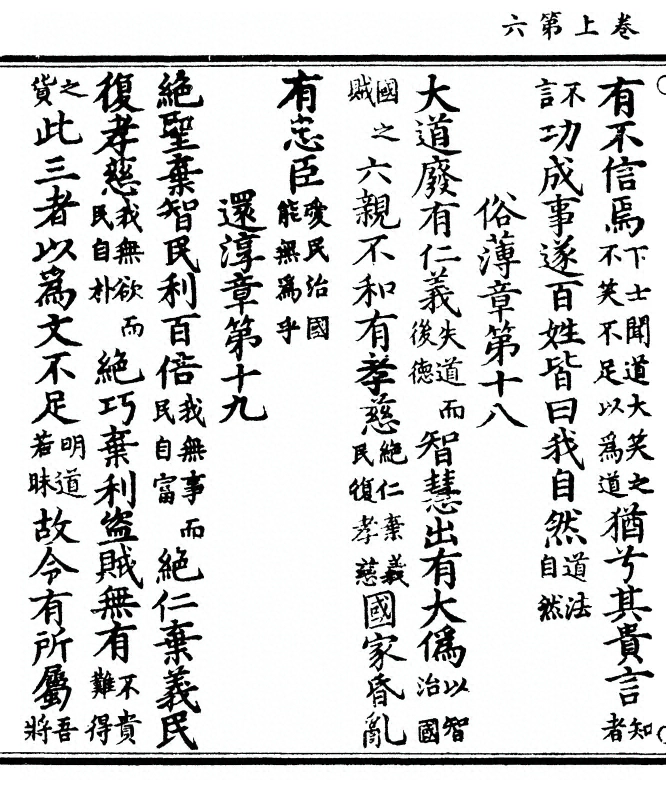 卷上第六
有不信焉下士聞道大笑之不笑不足以爲道猶兮其貴言知者
不言功成事遂百姓皆曰我自然道法自然
俗薄章第十八
大道廢有仁義失道而後德智慧出有大僞以智治國
國之賊六親不和有孝慈絕仁棄義民復孝慈國家昏亂
有忠臣愛民治國能無爲乎
還淳章第十九
絕聖棄智民利百倍我無事而民自富絕仁棄義民
復孝慈我無欲而民自朴絕巧棄利盜賊無有不貴難得
之貨此三者以爲文不足明道若昧故令有所屬吾將